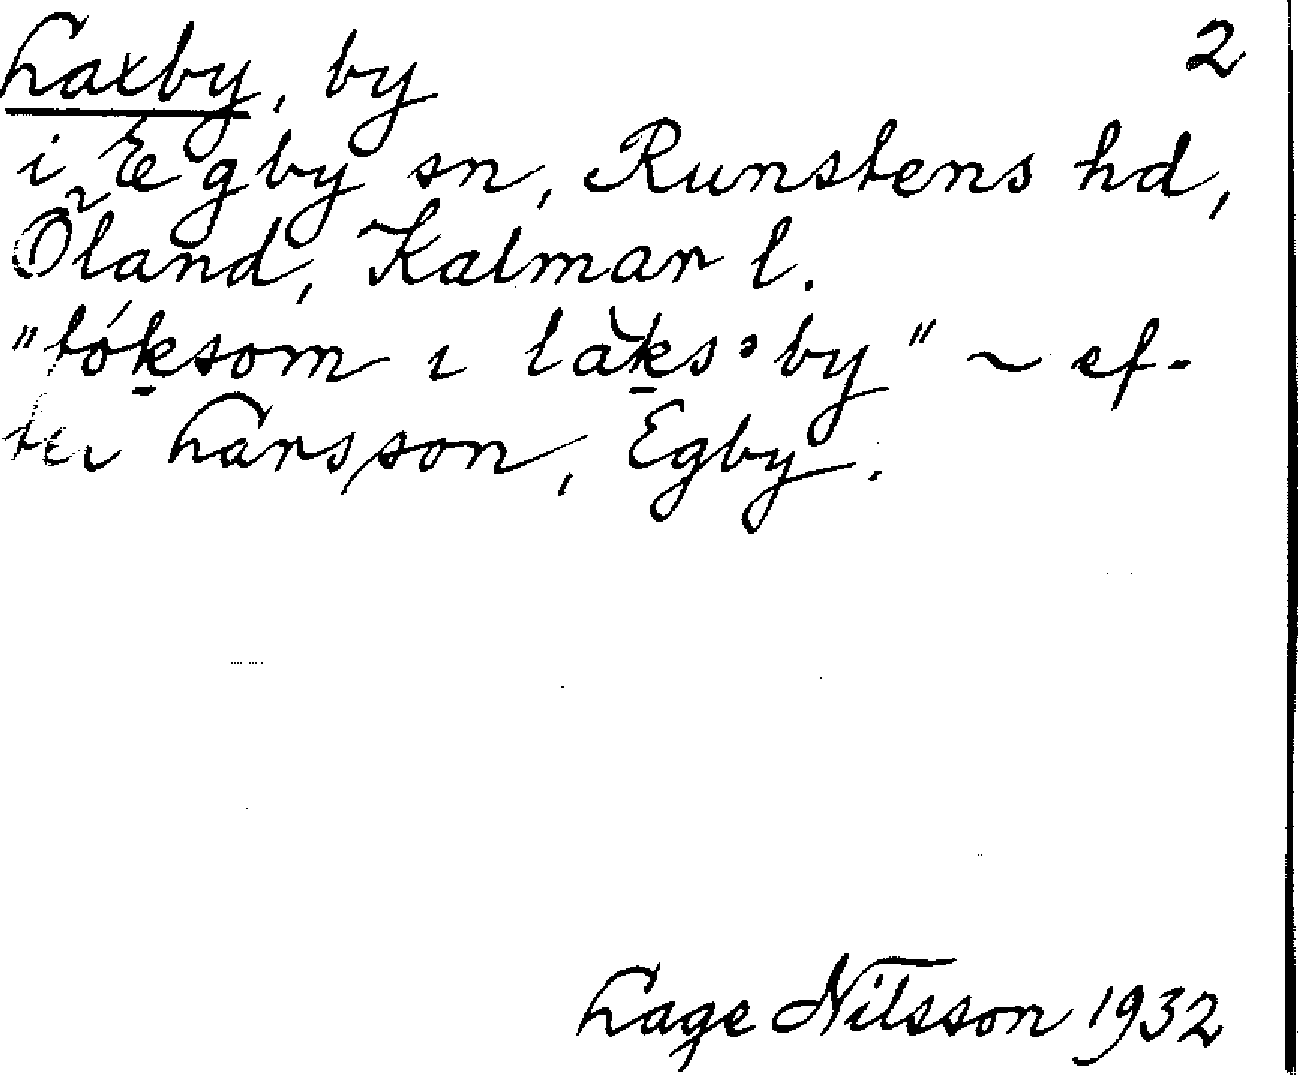 Laxby, by 2
i Egby sn, Runstens hd,
Öland, Kalmar l.
"tóksom ı làks·by" ~ ef-
ter Larsson, Egby.
Lage Nilsson 1932